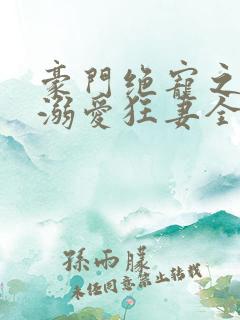 豪門絕寵之
溺愛狂妻全
孫雨朦
未经同意禁止转载